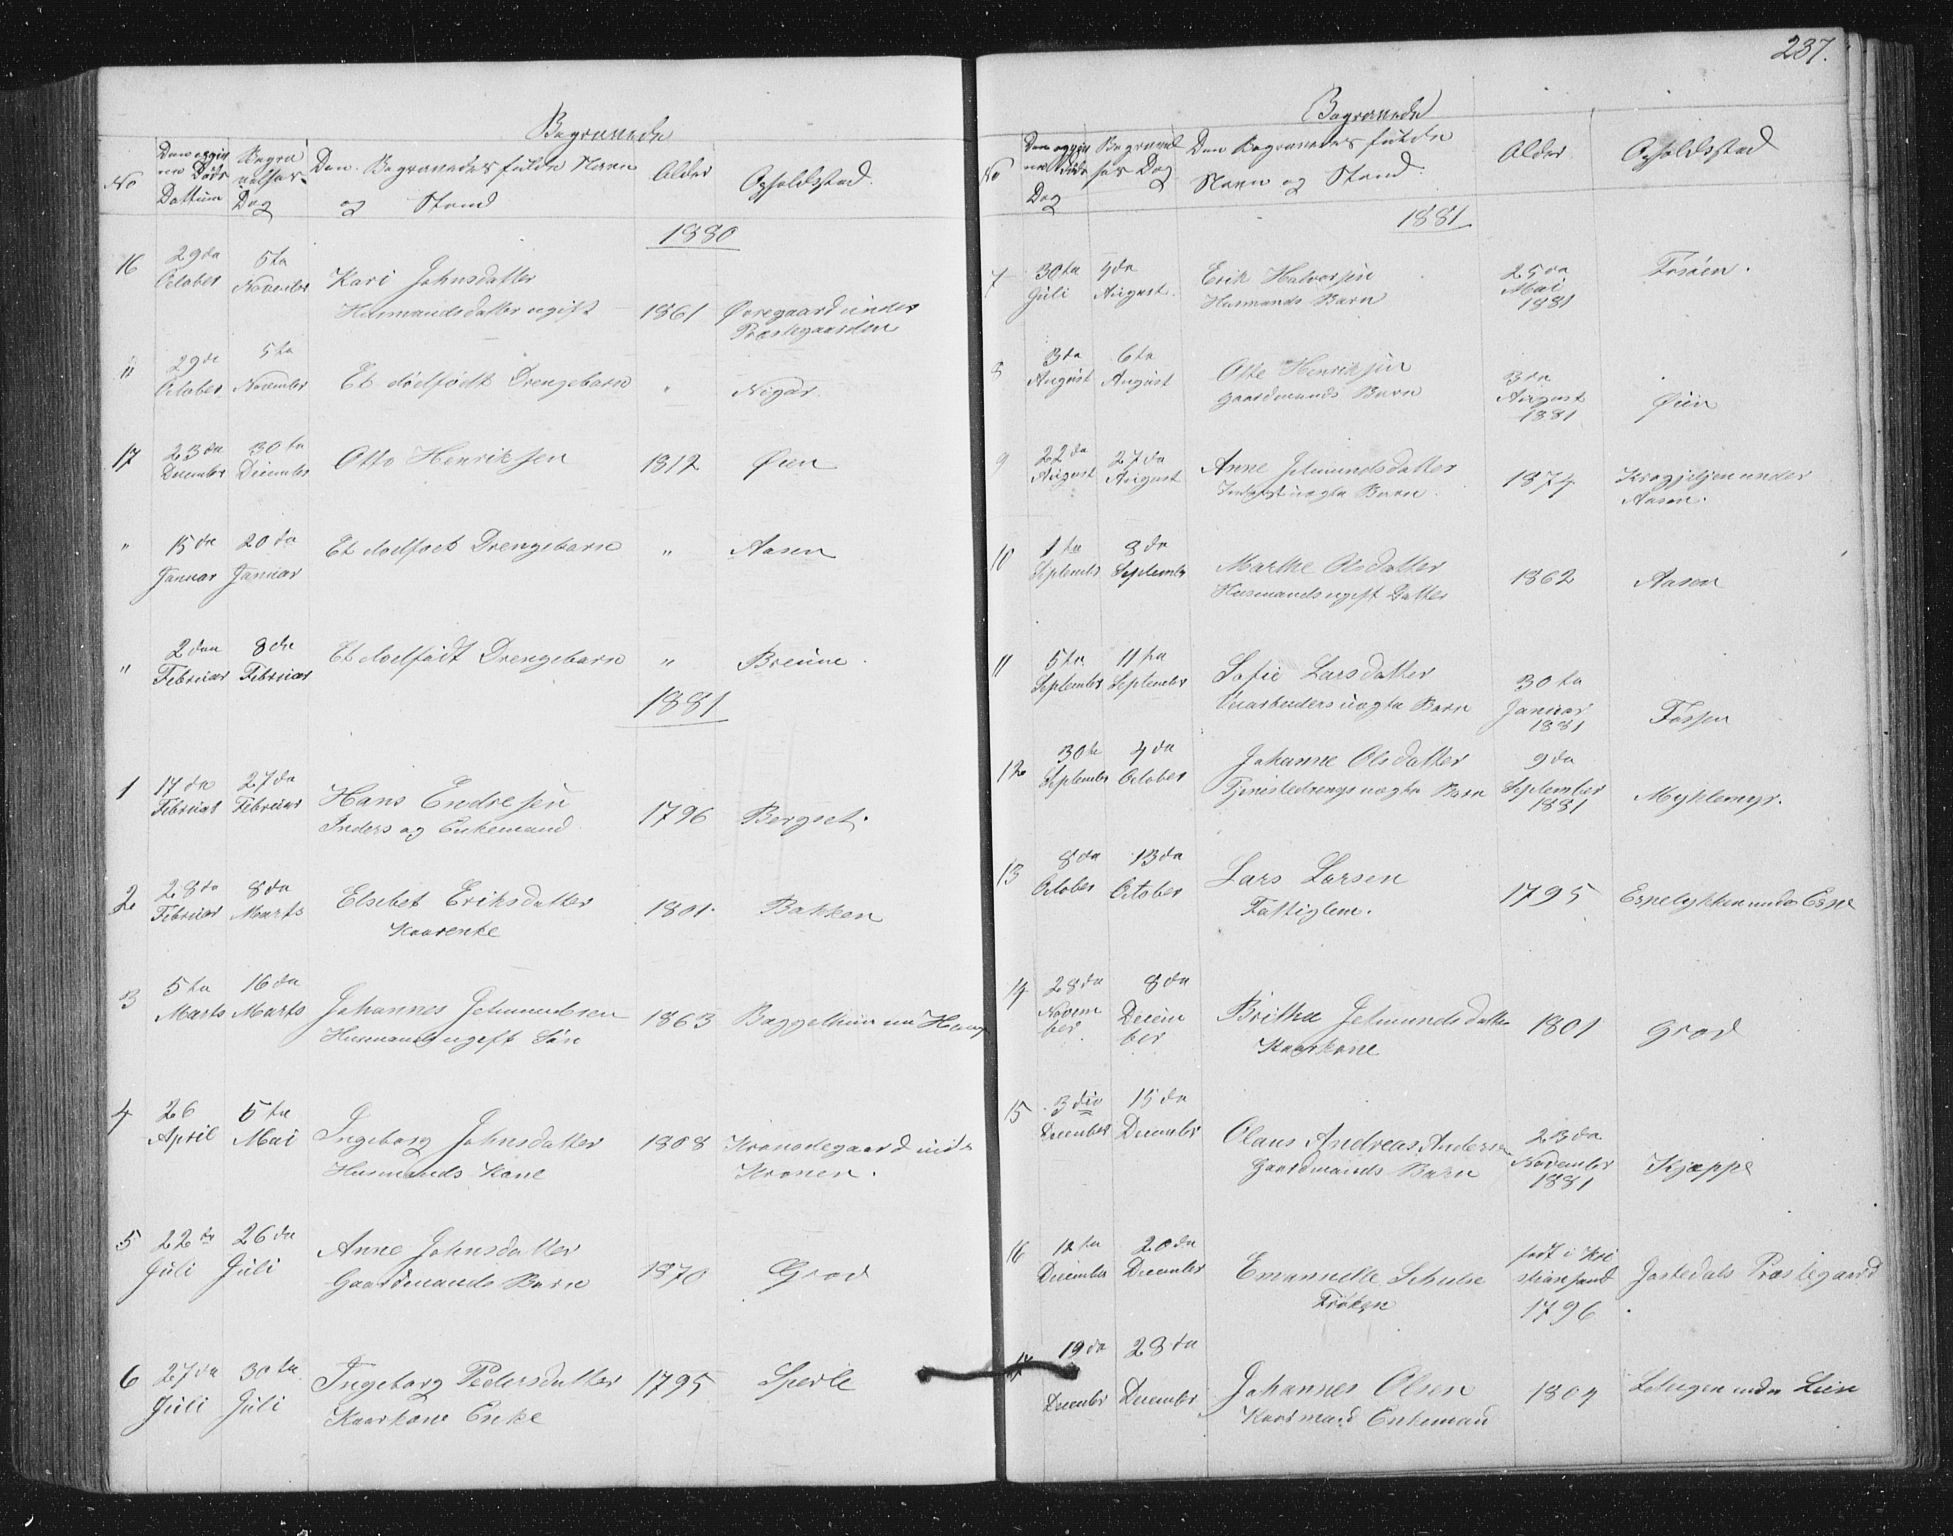 Begravede
No
Den opgivne Døds Dattum
Begravelses Dag
Den Begravedes fulde Navn og Stand
Alder
Opholdsstad.
1880
16 29de October 5te November Kari Johnsdatter
Husmandsdatter ugift 1861 Øvregaard under
Præstegaarden
" 29de October 5te November Et dødfødt Drengebarn " Nigar.
17 23de December 30te December Otto Henriksen 1812 Øien
" 15de Januar 20de Januar Et dødfødt Drengebarn " Aasen
" 2den Februar 8de Februar Et dødfødt Drengebarn "
1881
1 17de Februar 27de Februar Hans Endresen
Inders og Enkemand 1796 Bergset.
2 28de Februar 8de Marts Elsebet Eriksdatter 1801. Bakken
Kaarenke
3 5te Marts 16de Marts Johannes Jetmundsen
Husmands ugift Søn 1863
4 26 April 5te Mai Ingeborg Johnsdatter 1808 Kronsdegaard under
Husmands Kone Kronen.
5 22de Juli 26de Juli Anne Johnsdatter
Gaardmands Barn 1870 Grod
6 27de Juli 30te Juli Ingeborg Pedersdatter 1795 Sperle
Kaarkone Enke
237.
Begravede
No
Den opgivne Døds Dag
Begravelses Dag
Den Begravedes fulde
Navn og Stand.
Alder
Opholdsstad
1881
7 30te Juli 4de August. Erik Halvorsen
Husmands Barn 25de Mai 1881 Fosøen.
8 3de August 6te August Otte Henriksen
Gaardmands Barn 3de August 1881 Øien
9 22de August 27de August Anne Jetmundsdatter
Inderst uægte Barn. 1874 under
Aasen.
10 1te September 8de September Marthe Olsdatter
Husmands ugift Datter 1862 Aasen
11 5te September 11te September Sofie Larsdatter
uægte Barn 30te Januar 1881 Fossen
12 30te September 4de October Johanne Olsdatter
Tjenestedrengs uægte Barn 9de September 1881 Myklemyr.
13 8de October 13de October Lars Larsen
Fattiglem. 1795 Espelykken under Espe
14 28de November 8de December Brithe Jetmundsdatter
Kaarkone 1801 Grod
15 3die December 15de December Olaus Andreas Andersen
Gaardmands Barn 23de November 1881 Kjæppe
16 12te December 20de December Emanuelle Schulse
Frøken født i Kristiansand 1796 Jostedals Præstegaard
17 19de December 28de December Johannes Olsen
Kaarmand Enkemand 1804 under Lien